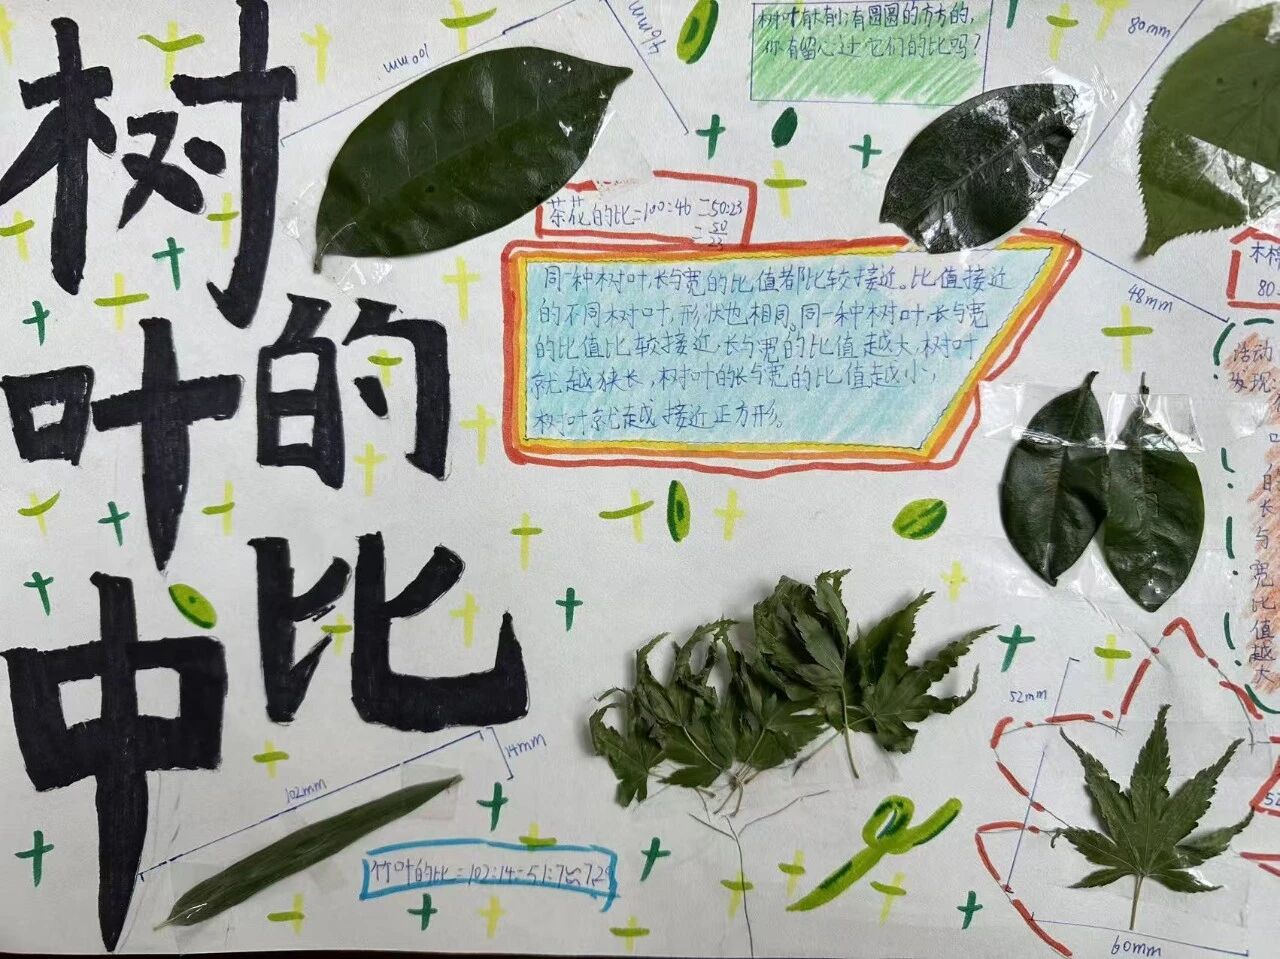 树叶中的比
100mm
46mm
树叶有大有小有圆圆的方方的,
你有留心过它们的比吗？
80mm
茶花的比=100:46=50:23
=50/23
同一种树叶,长与宽的比值都比较接近。比值接近
的不同树叶,形状也相同。同一种树叶,长与宽
的比值比较接近,长与宽的比值越大,树叶
就越狭长,树叶的长与宽的比值越小,
树叶就越接近正方形。
48mm
80
活动
发现:
叶
的
长
与
宽
比
值
越
大
52mm
60mm
52
102mm
14mm
竹叶的比=102:14=51:7≈7.29